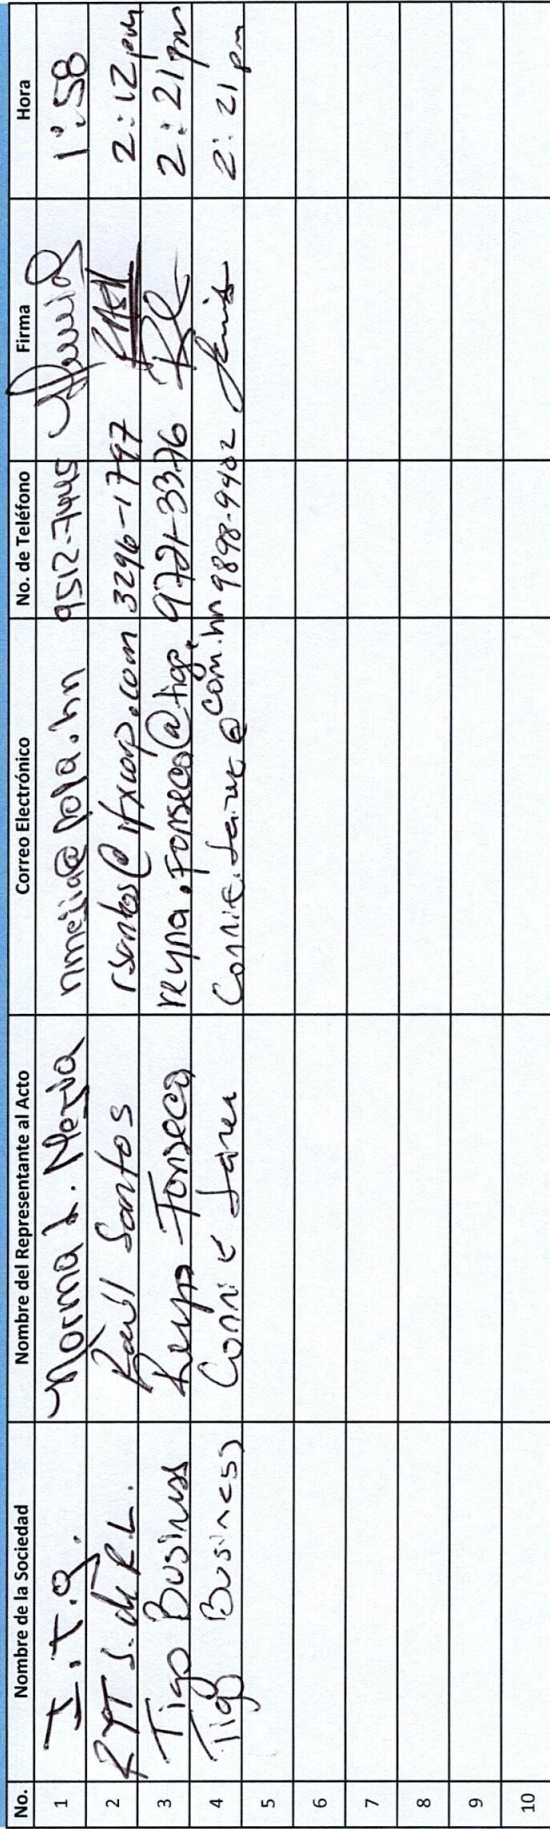 No. Nombre de la Sociedad Nombre del Representante al Acto Correo Electrónico No. de Teléfono Firma Hora
1 I.T.G. Norma L. Mejia nmejia@ 9512-7445 1:58
2 S. de R.L. Raúl Santos rsantos@ifxcorp.com 3296-1797 2:12 pm
3 Tigo Business Reyna Fonseca reyna.fonseca@tigo. 9721-3376 2:21 pm
4 Tigo Business Connie com.hn 9898-9402 2:21 pm
5
6
7
8
9
10